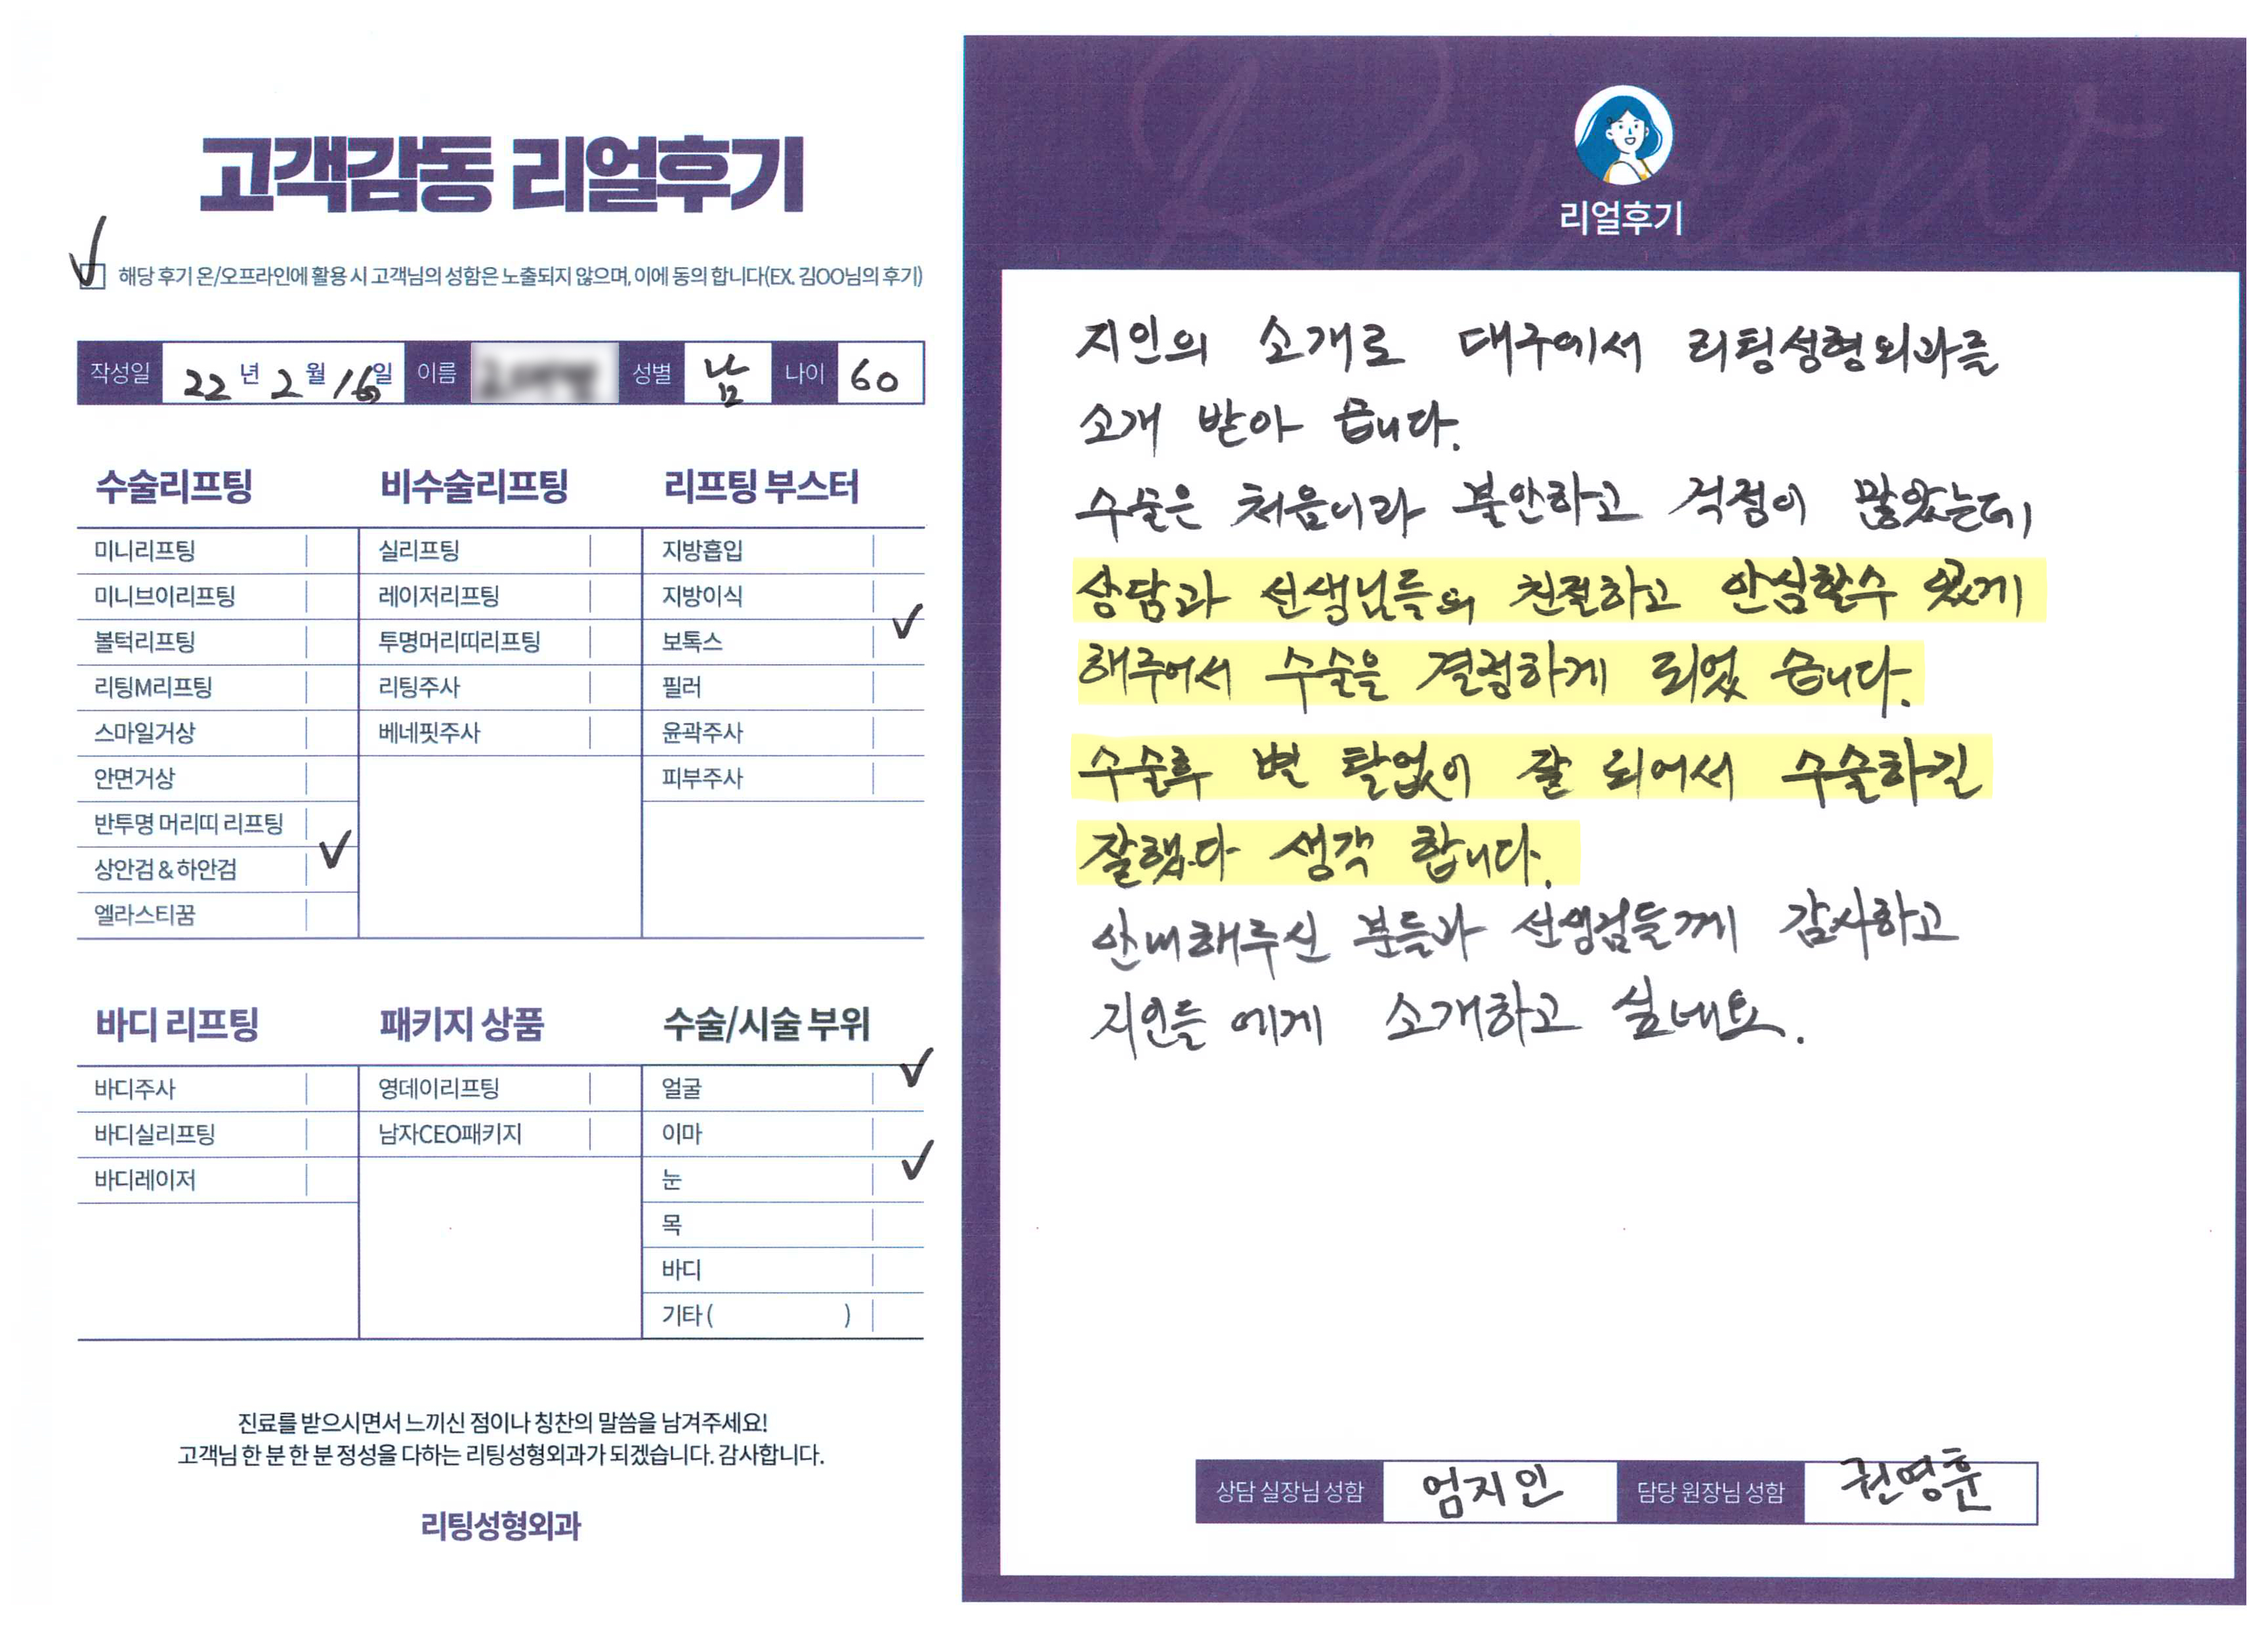 고객감동 리얼후기
해당 후기 온/오프라인에 활용 시 고객님의 성함은 노출되지 않으며, 이에 동의 합니다(EX. 김OO님의 후기)
작성일 22 년 2 월 16 일 이름 성별 남 나이 60
수술리프팅
미니리프팅
미니브이리프팅
볼턱리프팅
리팅M리프팅
스마일거상
안면거상
반투명 머리띠 리프팅
상안검 & 하안검
엘라스티꿈
비수술리프팅
실리프팅
레이저리프팅
투명머리띠리프팅
리팅주사
베네핏주사
리프팅 부스터
지방흡입
지방이식
보톡스
필러
윤곽주사
피부주사
바디 리프팅
바디주사
바디실리프팅
바디레이저
패키지 상품
영데이리프팅
남자CEO패키지
수술/시술 부위
얼굴
이마
눈
목
바디
기타 ( )
진료를 받으시면서 느끼신 점이나 칭찬의 말씀을 남겨주세요!
고객님 한 분 한 분 정성을 다하는 리팅성형외과가 되겠습니다. 감사합니다.
리팅성형외과
Review
리얼후기
지인의 소개로 대구에서 리팅성형외과를
소개 받아 습니다.
수술은 처음이라 불안하고 걱정이 많았는데
상담과 선생님들의 친절하고 안심할수 있게
해주어서 수술을 결정하게 되었 습니다.
수술후 별 탈없이 잘 되어서 수술하길
잘했다 생각 합니다.
안내해주신 분들과 선생님들께 감사하고
지인들 에게 소개하고 싶네요.
상담 실장님 성함 엄지인 담당 원장님 성함 권영훈